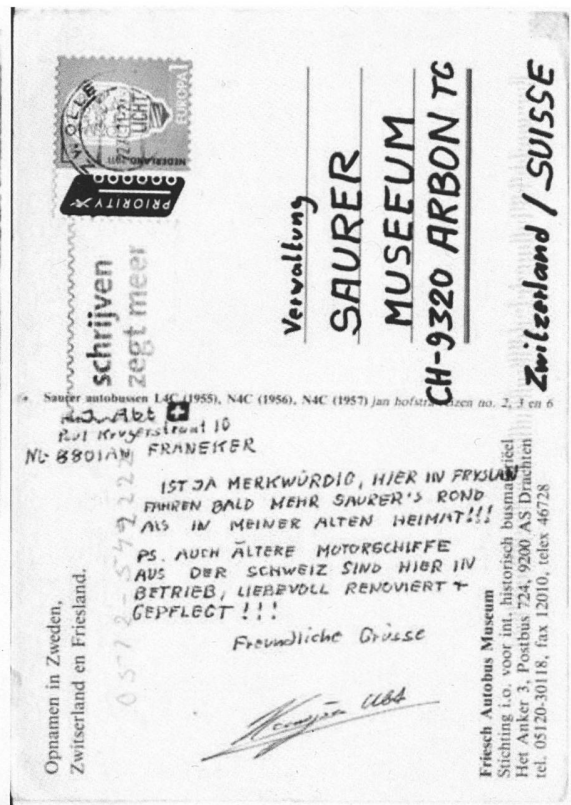 ZWOLLE
LICHT
EUROPA 1
NEDERLAND 2011
PRIORITY
schrijven
zegt meer
Verwaltung
SAURER
MUSEEUM
CH-9320 ARBON TG
Zwitzerland / SUISSE
Saurer autobussen L4C (1955), N4C (1956), N4C (1957) jan hofstra reizen no. 2, 3 en 6
Abt
Paul Krugerstraat 10
NL-8801AN FRANEKER
IST JA MERKWÜRDIG, HIER IN FRYSLAN
FAHREN BALD MEHR SAURER'S ROND
ALS IN MEINER ALTEN HEIMAT!!!
PS. AUCH ÄLTERE MOTORSCHIFFE
AUS DER SCHWEIZ SIND HIER IN
BETRIEB, LIEBEVOLL RENOVIERT +
GEPFLEGT!!!
Freundliche Grüsse
Opnamen in Zweden,
Zwitserland en Friesland.
Friesch Autobus Museum
Stichting i.o. voor int. historisch busmateriëel
Het Anker 3, Postbus 724, 9200 AS Drachten
tel. 05120-30118, fax 12010, telex 46728